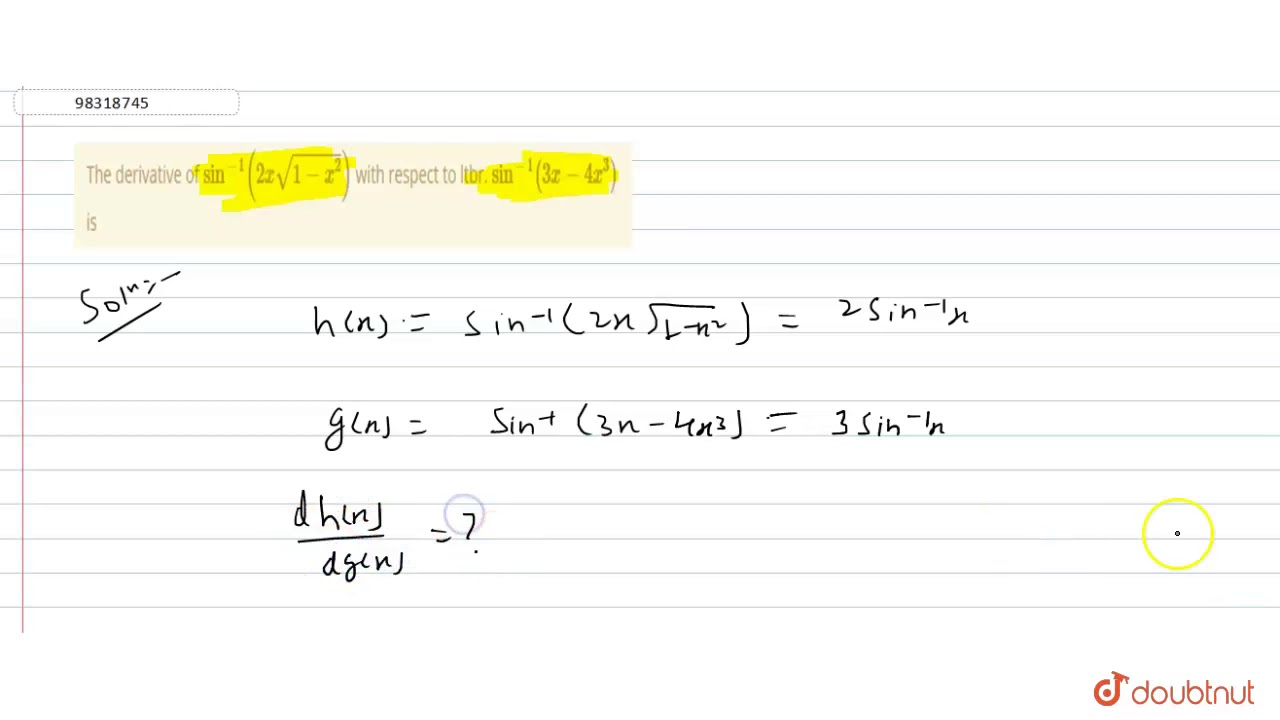 98318745
The derivative of sin⁻¹(2x√(1−x²)) with respect to ltbr. sin⁻¹(3x − 4x³)
is
Soln:-
h(x) = sin⁻¹(2x√(1-x²)) = 2 sin⁻¹x
g(x) = sin⁻¹(3x - 4x³) = 3 sin⁻¹x
dh(x)
= ?
dg(x)
doubtnut